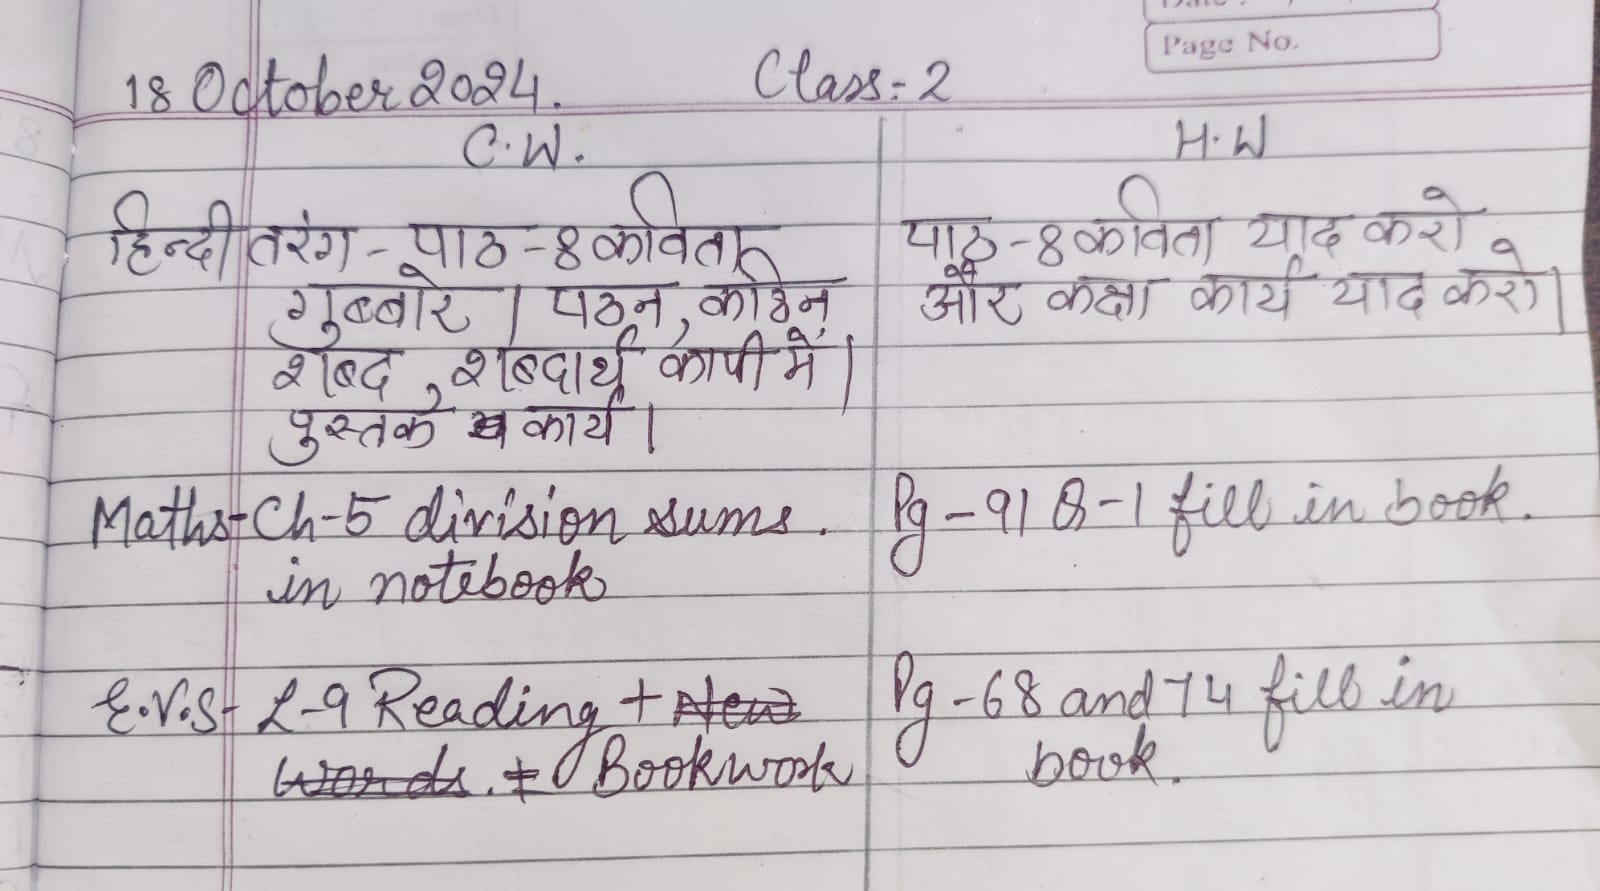 Date :
Page No.
18 October 2024. Class:- 2
C.W. H.W
हिन्दी तरंग - पाठ - 8 कविता
गुब्बारे । पठन, कठिन
शब्द, शब्दार्थ कापी में ।
पुस्तक कार्य ।
पाठ - 8 कविता याद करो
और कक्षा कार्य याद करो ।
Maths - Ch-5 division sums.
in notebook
Pg - 91 Q-1 fill in book.
E.V.S - L-9 Reading + New
words. + Bookwork
Pg - 68 and 74 fill in
book.